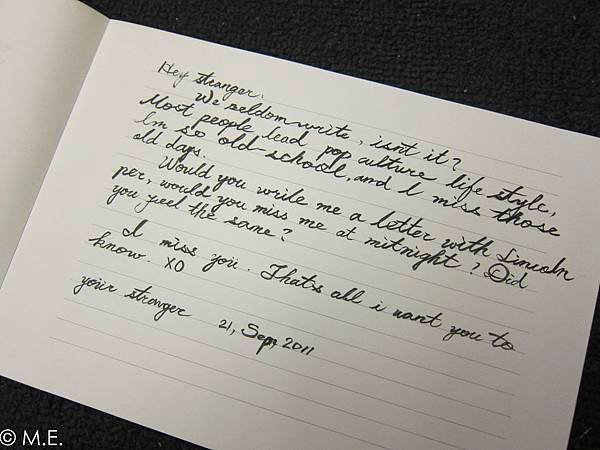 Hey stranger.
We seldom write, isn't it?
Most people lead pop culture life style,
I'm so old-school, and I miss those
old days.
Would you write me a letter with Lincoln
per, would you miss me at mitnight? Did
you feel the same?
I miss you. That's all i want you to
know. XO
your stranger 21, Sep, 2011
© M.E.